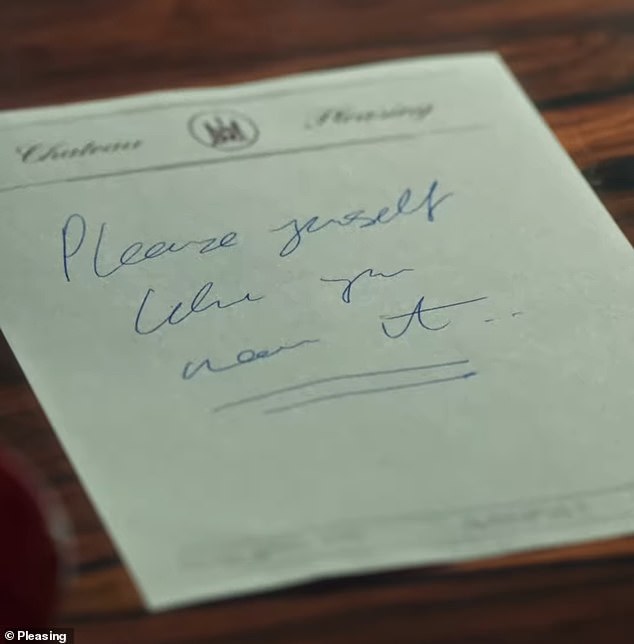 Chateau Pleasing
Please yourself
like you
mean it...
© Pleasing